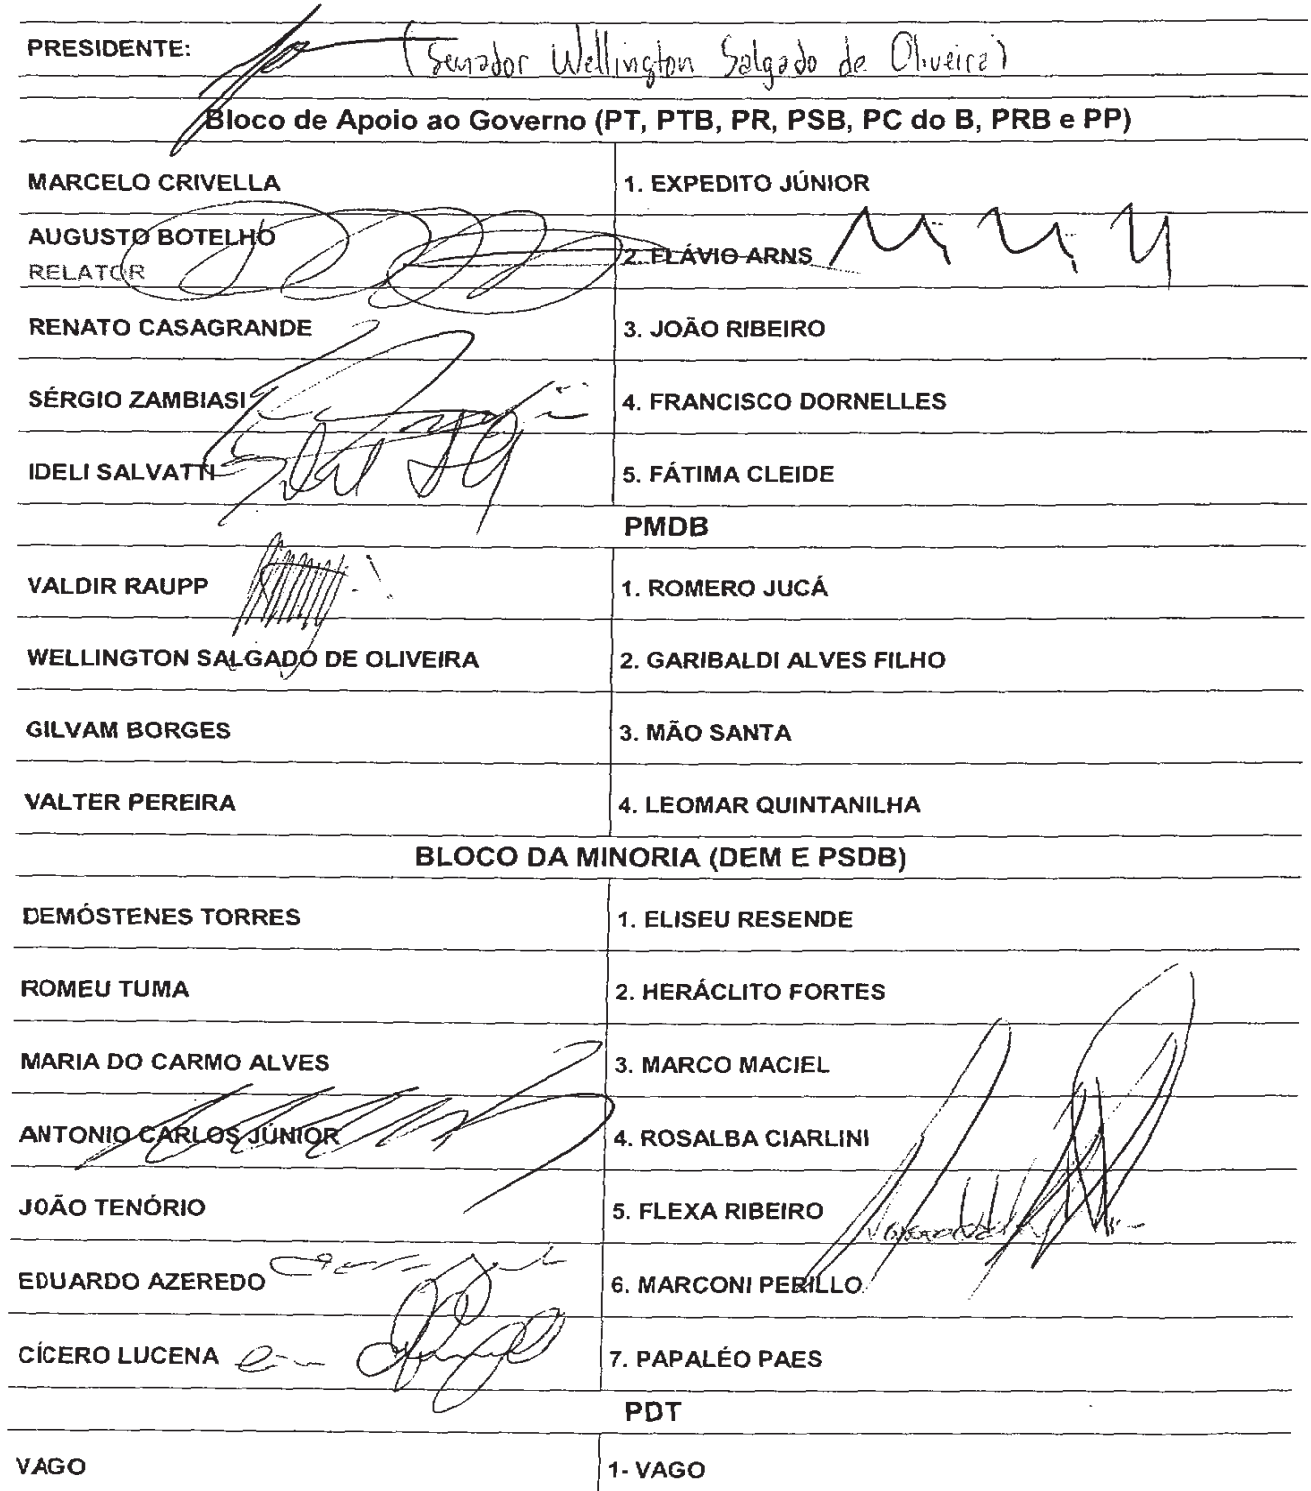 PRESIDENTE: (Senador Wellington Salgado de Oliveira)
Bloco de Apoio ao Governo (PT, PTB, PR, PSB, PC do B, PRB e PP)
MARCELO CRIVELLA 1. EXPEDITO JÚNIOR
AUGUSTO BOTELHO 2. FLÁVIO ARNS
RELATOR
RENATO CASAGRANDE 3. JOÃO RIBEIRO
SÉRGIO ZAMBIASI 4. FRANCISCO DORNELLES
IDELI SALVATTI 5. FÁTIMA CLEIDE
PMDB
VALDIR RAUPP 1. ROMERO JUCÁ
WELLINGTON SALGADO DE OLIVEIRA 2. GARIBALDI ALVES FILHO
GILVAM BORGES 3. MÃO SANTA
VALTER PEREIRA 4. LEOMAR QUINTANILHA
BLOCO DA MINORIA (DEM E PSDB)
DEMÓSTENES TORRES 1. ELISEU RESENDE
ROMEU TUMA 2. HERÁCLITO FORTES
MARIA DO CARMO ALVES 3. MARCO MACIEL
ANTONIO CARLOS JÚNIOR 4. ROSALBA CIARLINI
JOÃO TENÓRIO 5. FLEXA RIBEIRO
EDUARDO AZEREDO 6. MARCONI PERILLO
CÍCERO LUCENA 7. PAPALÉO PAES
PDT
VAGO 1- VAGO